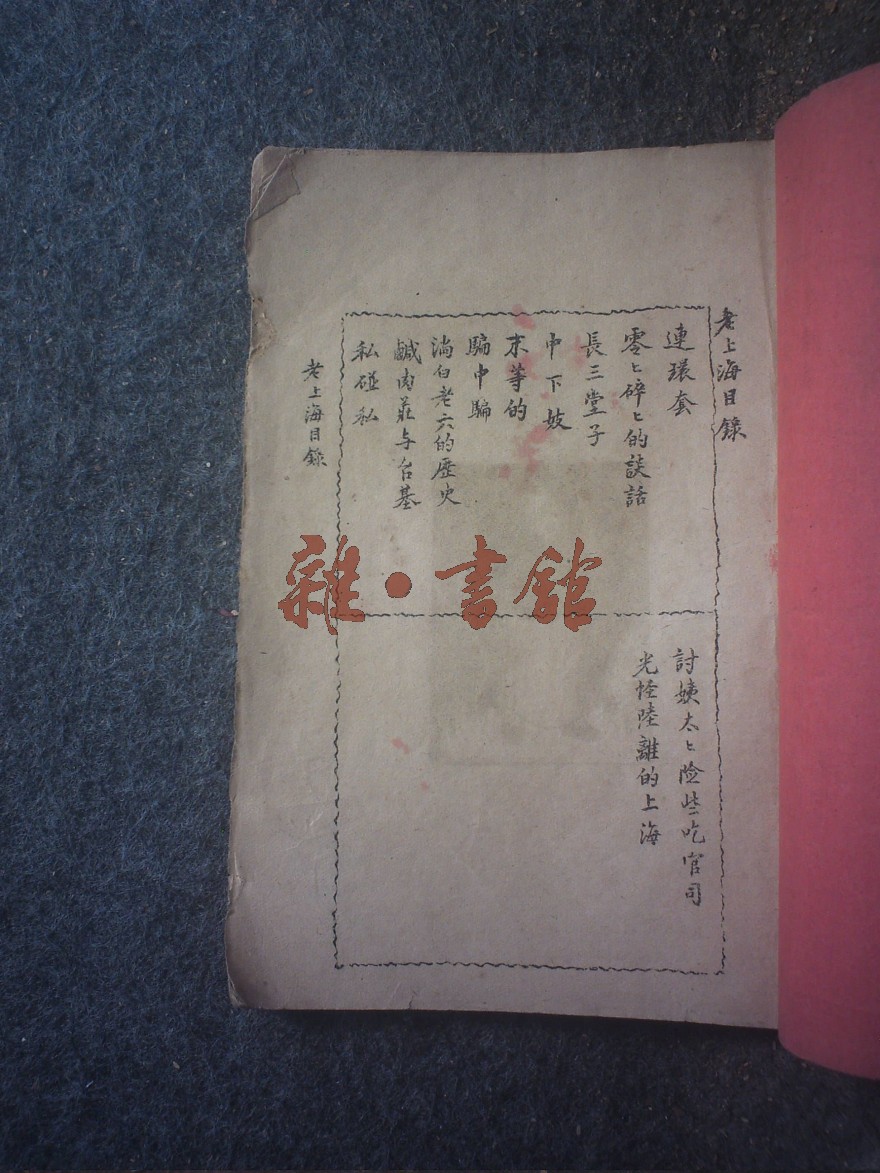 老上海目錄
連環套
零〻碎〻的談話
長三堂子
中下妓
末等的
騙中騙
淌白老六的歷史
鹹肉莊与台基
私碰私
討姨太〻險些吃官司
光怪陸離的上海
老上海目錄
雜·書館